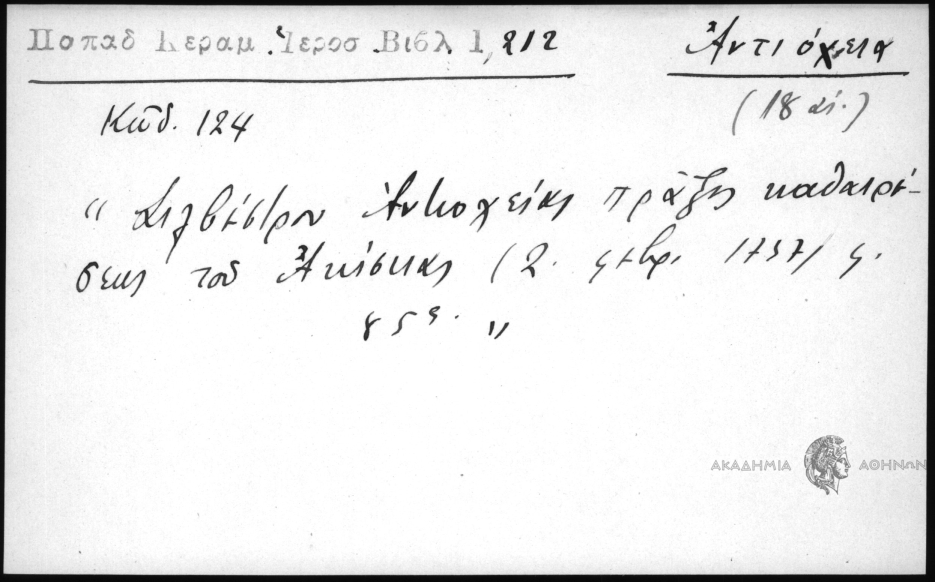 Παπαδ Κεραμ Ἱεροσ Βιβλ 1, 212
Ἀντιόχεια
(18 αἰ.)
Κῶδ. 124
“ Σιλβέστρου Ἀντιοχείας πρᾶξις καθαιρέ-
σεως τοῦ Ἀκίσκας (2. φεβρ. 1757) φ.
85ᵃ. ”
ΑΚΑΔΗΜΙΑ ΑΘΗΝΩΝ